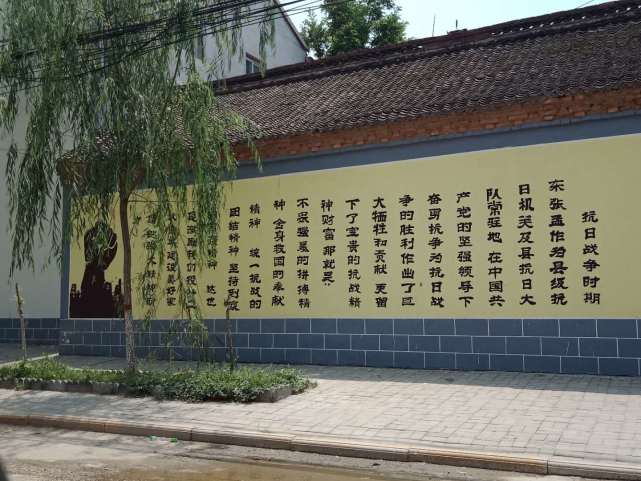 抗日战争时期
东张孟作为县级抗
日机关及县抗日大
队常驻地 在中国共
产党的坚强领导下
奋勇抗争为抗日战
争的胜利作出了巨
大牺牲和贡献 更留
下了宝贵的抗战精
神财富 那就是：
不畏强暴的拼搏精
神 舍身救国的奉献
精神 统一抗战的
团结精神 坚持到底
精神 这也